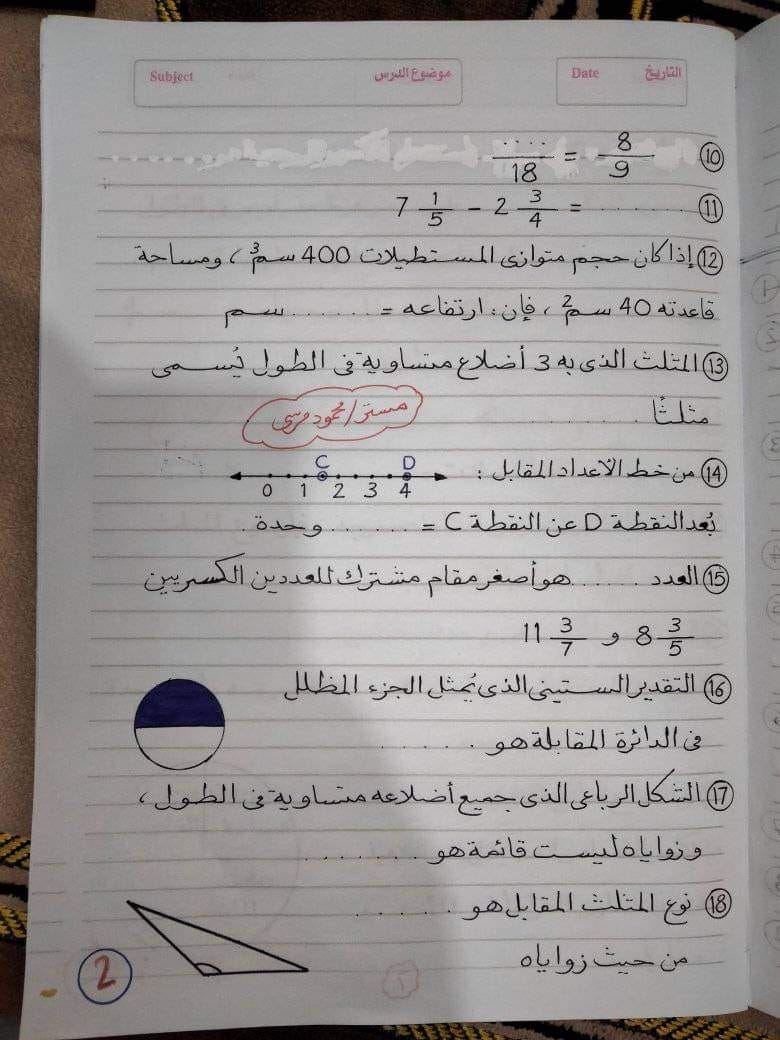 التاريخ Date موضوع الدرس Subject
⑩ 8/9 = ..../18
⑪ 7 1/5 - 2 3/4 = ........
⑫ إذا كان حجم متوازى المستطيلات 400 سم³ ، ومساحة
قاعدته 40 سم² ، فإن : ارتفاعه = ....... سم
⑬ المثلث الذى به 3 أضلاع متساوية فى الطول يُسمى
مثلثًا ........
مستر / محمود مرسى
⑭ من خط الأعداد المقابل :
C D
0 1 2 3 4
بُعد النقطة D عن النقطة C = ....... وحدة .
⑮ العدد ....... هو أصغر مقام مشترك للعددين الكسريين
8 3/5 و 11 3/7
⑯ التقدير الستينى الذى يُمثل الجزء المظلل
فى الدائرة المقابلة هو .......
⑰ الشكل الرباعى الذى جميع أضلاعه متساوية فى الطول ،
وزواياه ليست قائمة هو ........
⑱ نوع المثلث المقابل هو .......
من حيث زواياه
2